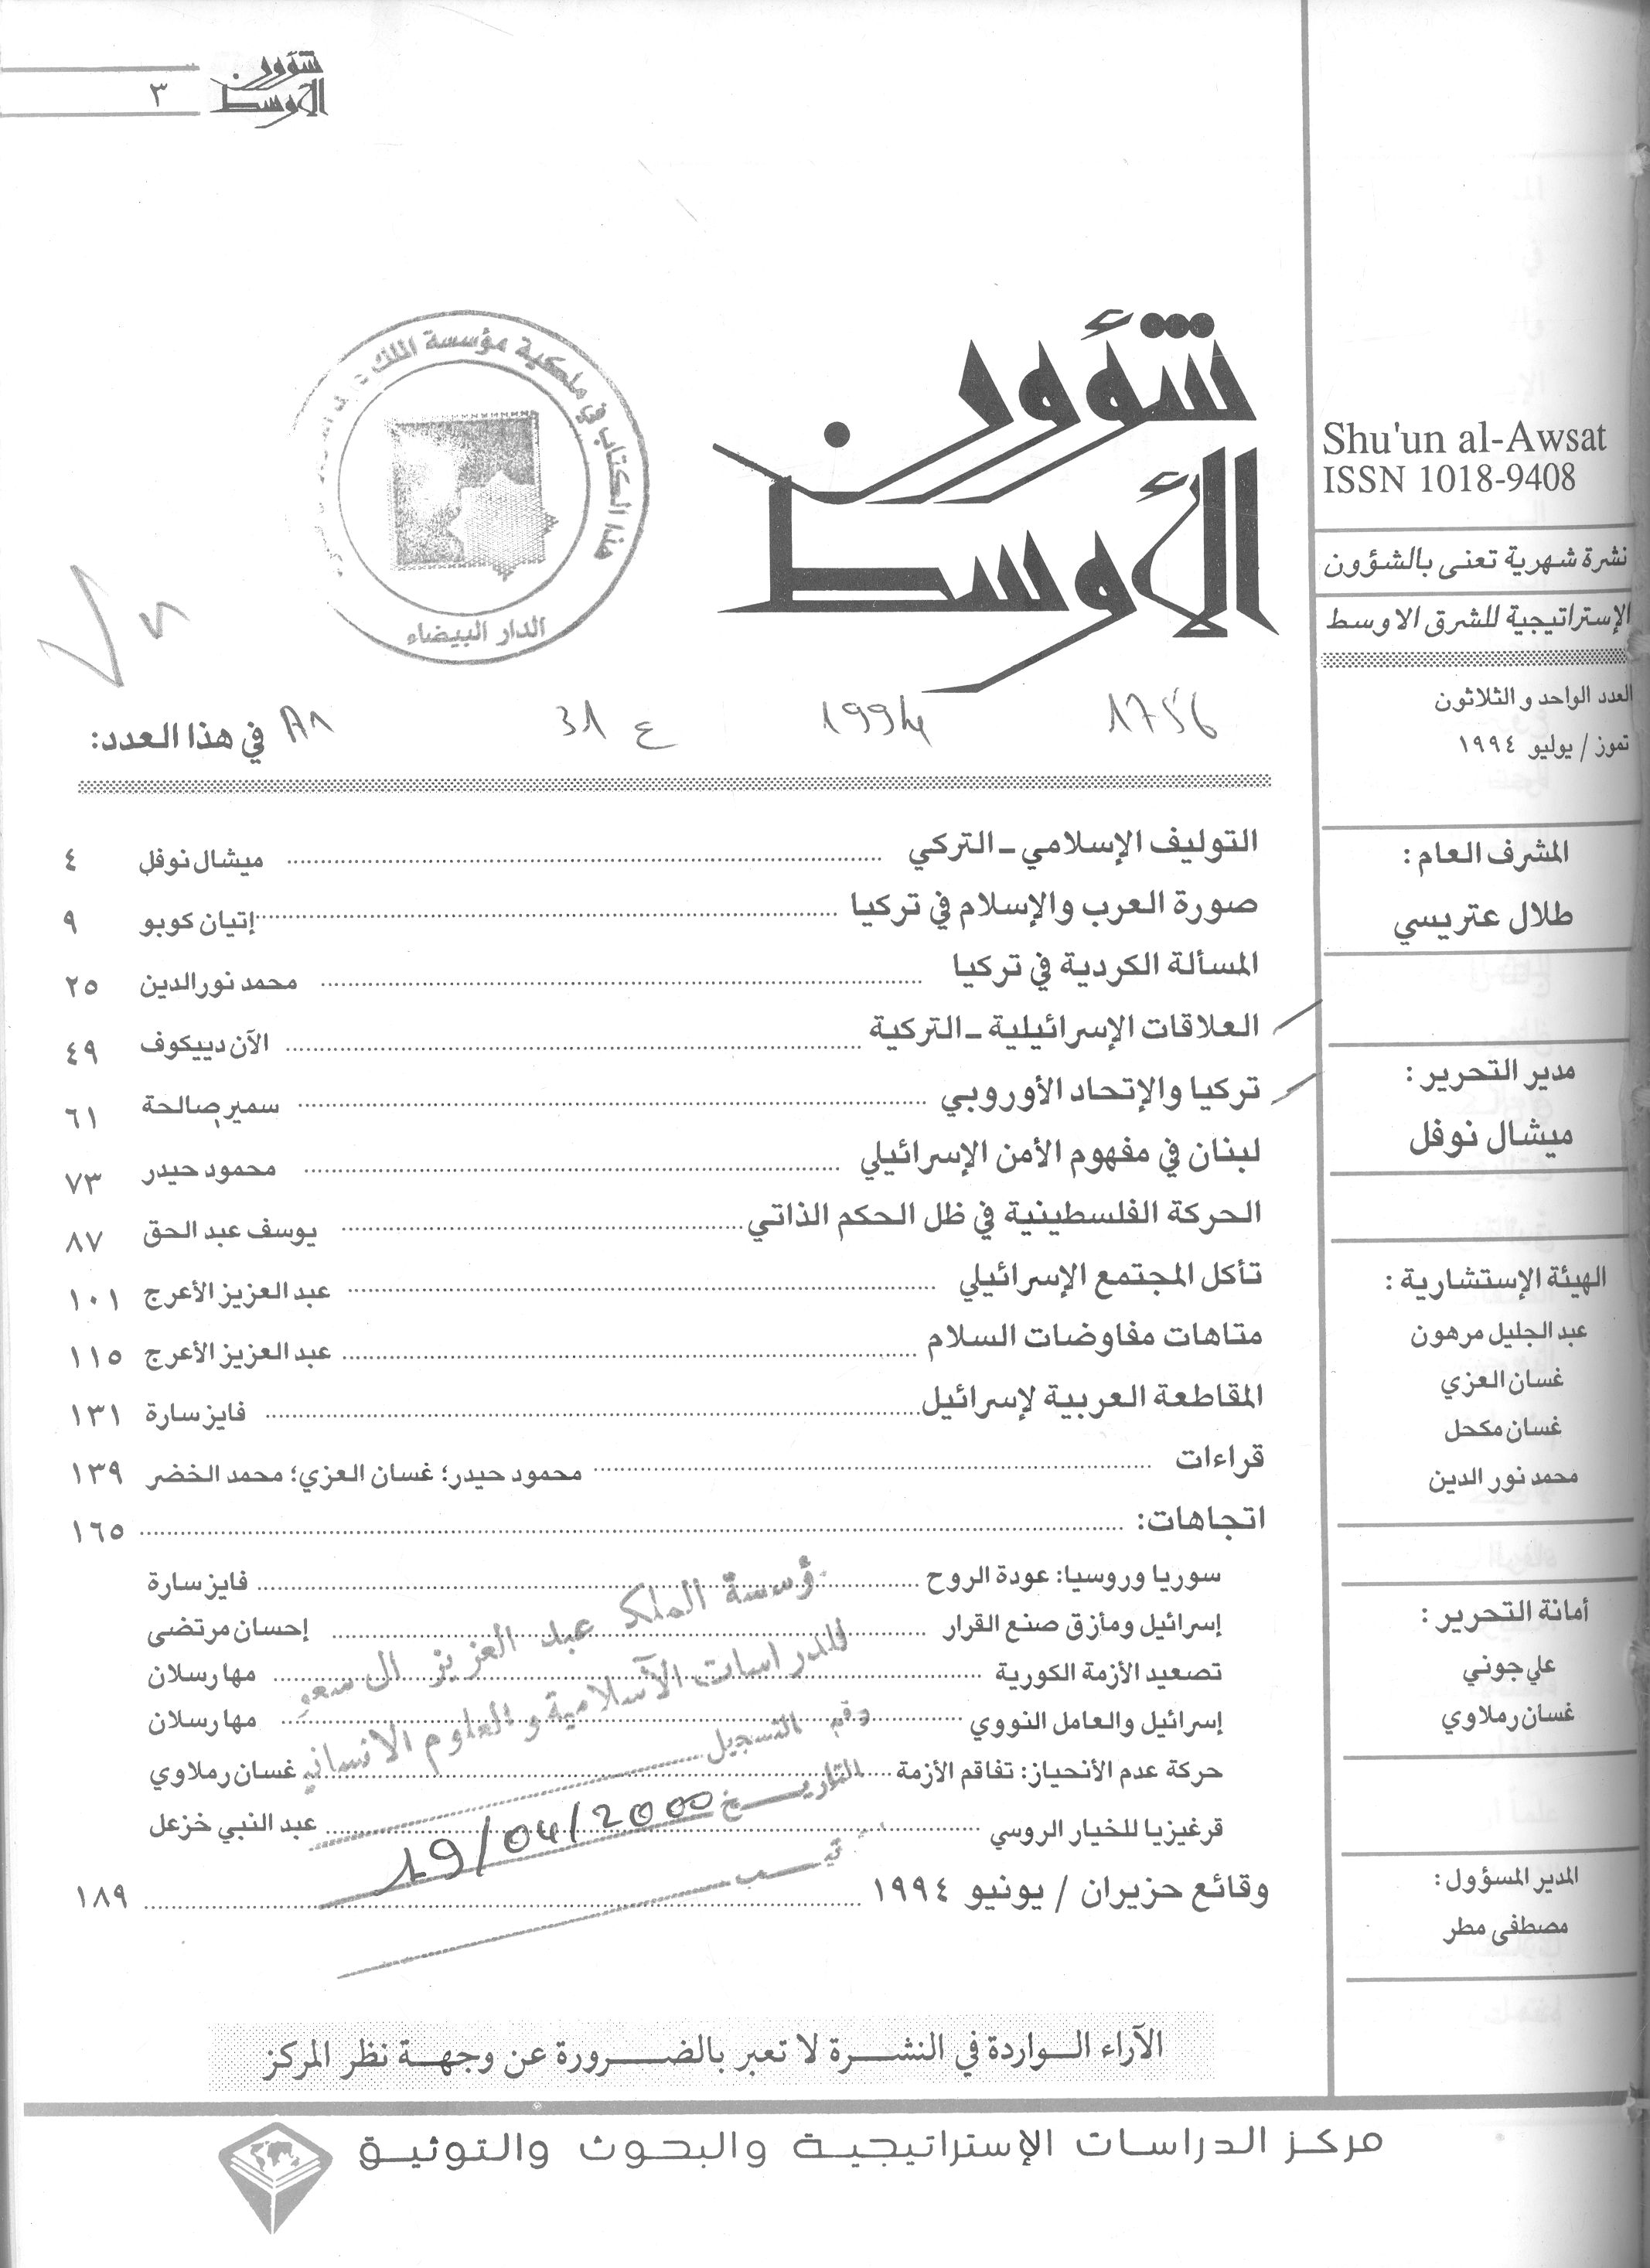 شؤون الأوسط
٣
شؤون
الأوسط
هذا الكتاب في ملكية مؤسسة الملك
الدار البيضاء
Shu'un al-Awsat
ISSN 1018-9408
نشرة شهرية تعنى بالشؤون
الإستراتيجية للشرق الاوسط
العدد الواحد و الثلاثون
تموز / يوليو ١٩٩٤
المشرف العام :
طلال عتريسي
مدير التحرير :
ميشال نوفل
الهيئة الإستشارية :
عبد الجليل مرهون
غسان العزي
غسان مكحل
محمد نور الدين
أمانة التحرير :
علي جوني
غسان رملاوي
المدير المسؤول :
مصطفى مطر
1994
ع 31
في هذا العدد:
التوليف الإسلامي ـ التركي ........ ميشال نوفل ٤
صورة العرب والإسلام في تركيا ........ إتيان كوبو ٩
المسألة الكردية في تركيا ........ محمد نورالدين ٢٥
العلاقات الإسرائيلية ـ التركية ........ الآن دييكوف ٤٩
تركيا والإتحاد الأوروبي ........ سمير صالحة ٦١
لبنان في مفهوم الأمن الإسرائيلي ........ محمود حيدر ٧٣
الحركة الفلسطينية في ظل الحكم الذاتي ........ يوسف عبد الحق ٨٧
تأكل المجتمع الإسرائيلي ........ عبد العزيز الأعرج ١٠١
متاهات مفاوضات السلام ........ عبد العزيز الأعرج ١١٥
المقاطعة العربية لإسرائيل ........ فايز سارة ١٣١
قراءات ........ محمود حيدر؛ غسان العزي؛ محمد الخضر ١٣٩
اتجاهات: ........ ١٦٥
سوريا وروسيا: عودة الروح ........ فايز سارة
إسرائيل ومأزق صنع القرار ........ إحسان مرتضى
تصعيد الأزمة الكورية ........ مها رسلان
إسرائيل والعامل النووي ........ مها رسلان
حركة عدم الأنحياز: تفاقم الأزمة ........ غسان رملاوي
قرغيزيا للخيار الروسي ........ عبد النبي خزعل
وقائع حزيران / يونيو ١٩٩٤ ........ ١٨٩
ؤسسة الملك عبد العزيز ال سعو
للدراسات الآسلامية و العلوم الانسانية
رقم التسجيل
التاريخ 19/04/2000
الآراء الواردة في النشرة لا تعبر بالضرورة عن وجهة نظر المركز
مركز الدراسات الإستراتيجية والبحوث والتوثيق